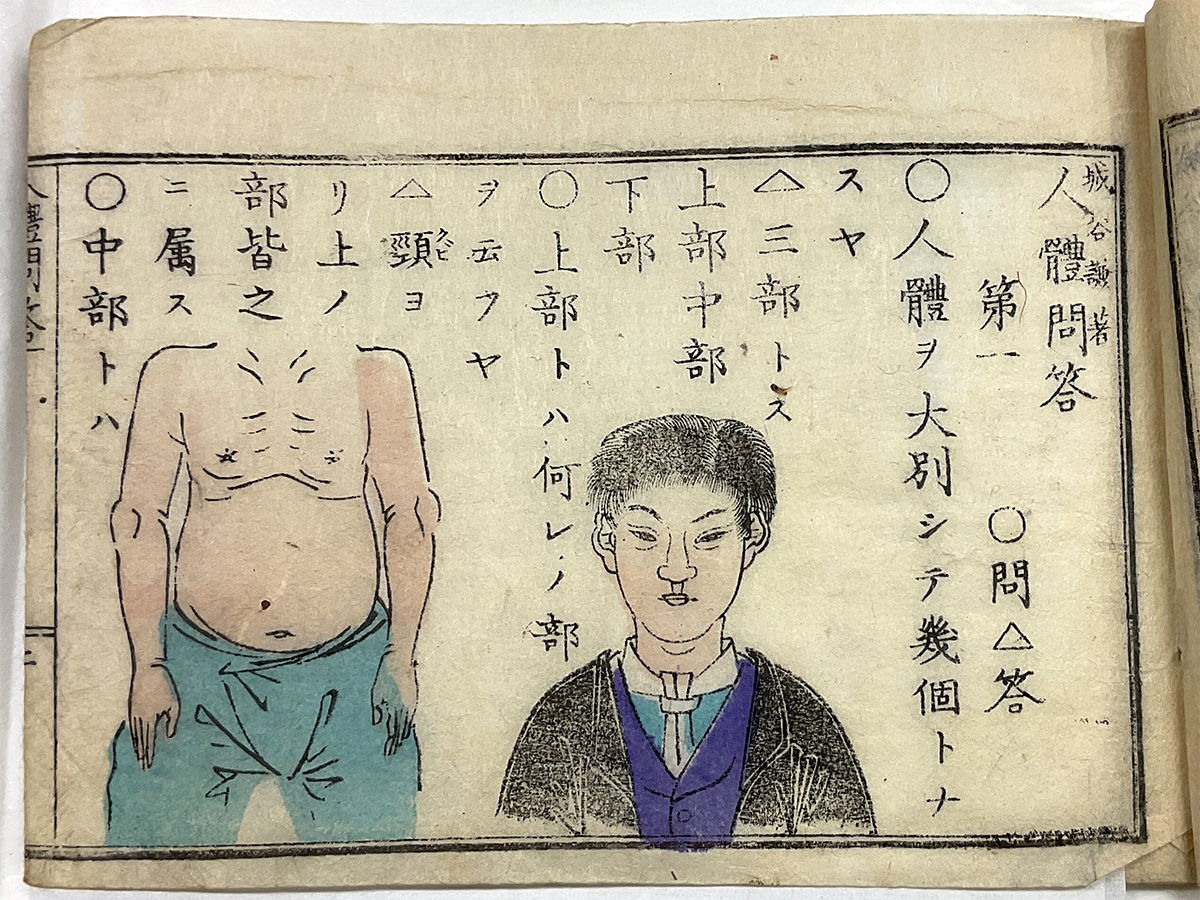 人體問答
城谷謙著
第一　○問△答
○人體ヲ大別シテ幾個トナ
スヤ
△三部トス
上部中部
下部
○上部トハ何レノ部
ヲ云フヤ
△頸ヨ
クビ
リ上ノ
部皆之
ニ属ス
○中部トハ